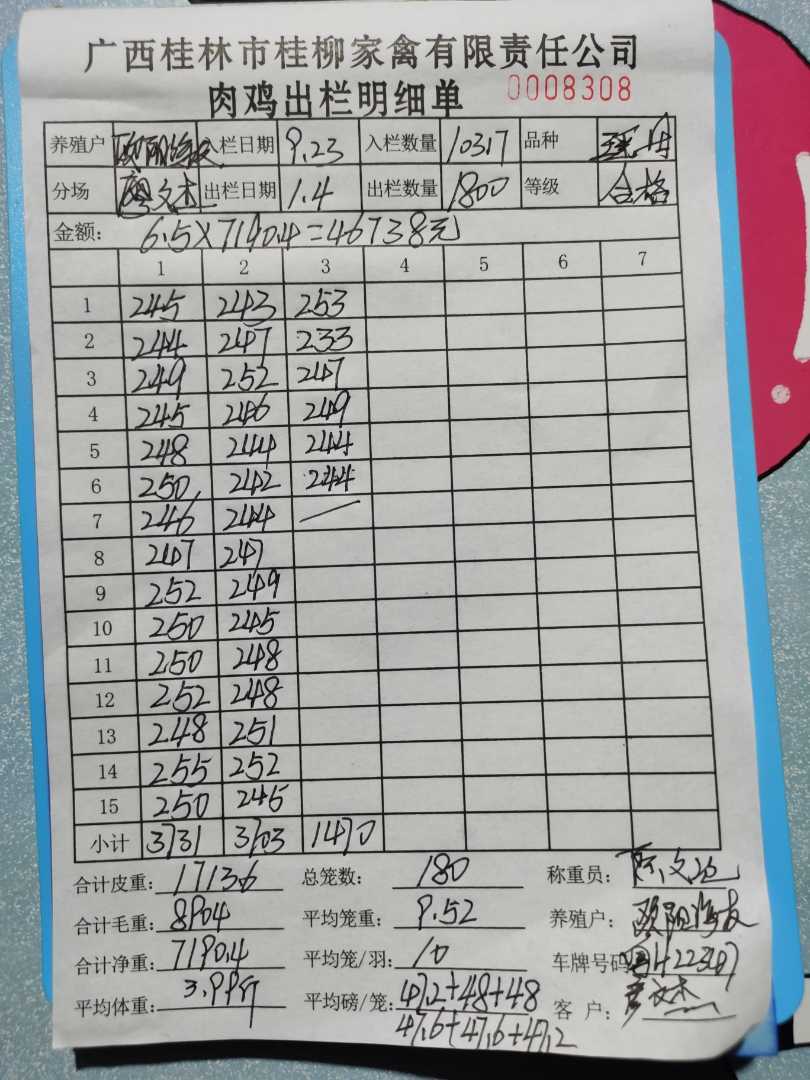 广西桂林市桂柳家禽有限责任公司
肉鸡出栏明细单 0008308
养殖户 欧阳海友 入栏日期 9.23 入栏数量 10317 品种
分场 廖文杰 出栏日期 1.4 出栏数量 1800 等级 合格
金额: 6.5×7190.4=46738元
1 2 3 4 5 6 7
1 245 243 253
2 244 247 233
3 249 252 247
4 245 246 249
5 248 244 244
6 250 242 244
7 246 244
8 247 247
9 252 249
10 250 245
11 250 248
12 252 248
13 248 251
14 255 252
15 250 245
小计 3731 3703 1470
合计皮重: 1713.6 总笼数: 180 称重员:
合计毛重: 8904 平均笼重: 9.52 养殖户: 欧阳海友
合计净重: 7190.4 平均笼/羽: 10 车牌号码
平均体重: 3.99斤 平均磅/笼: 47.2+48+48 客 户:
47.6+47.6+47.2